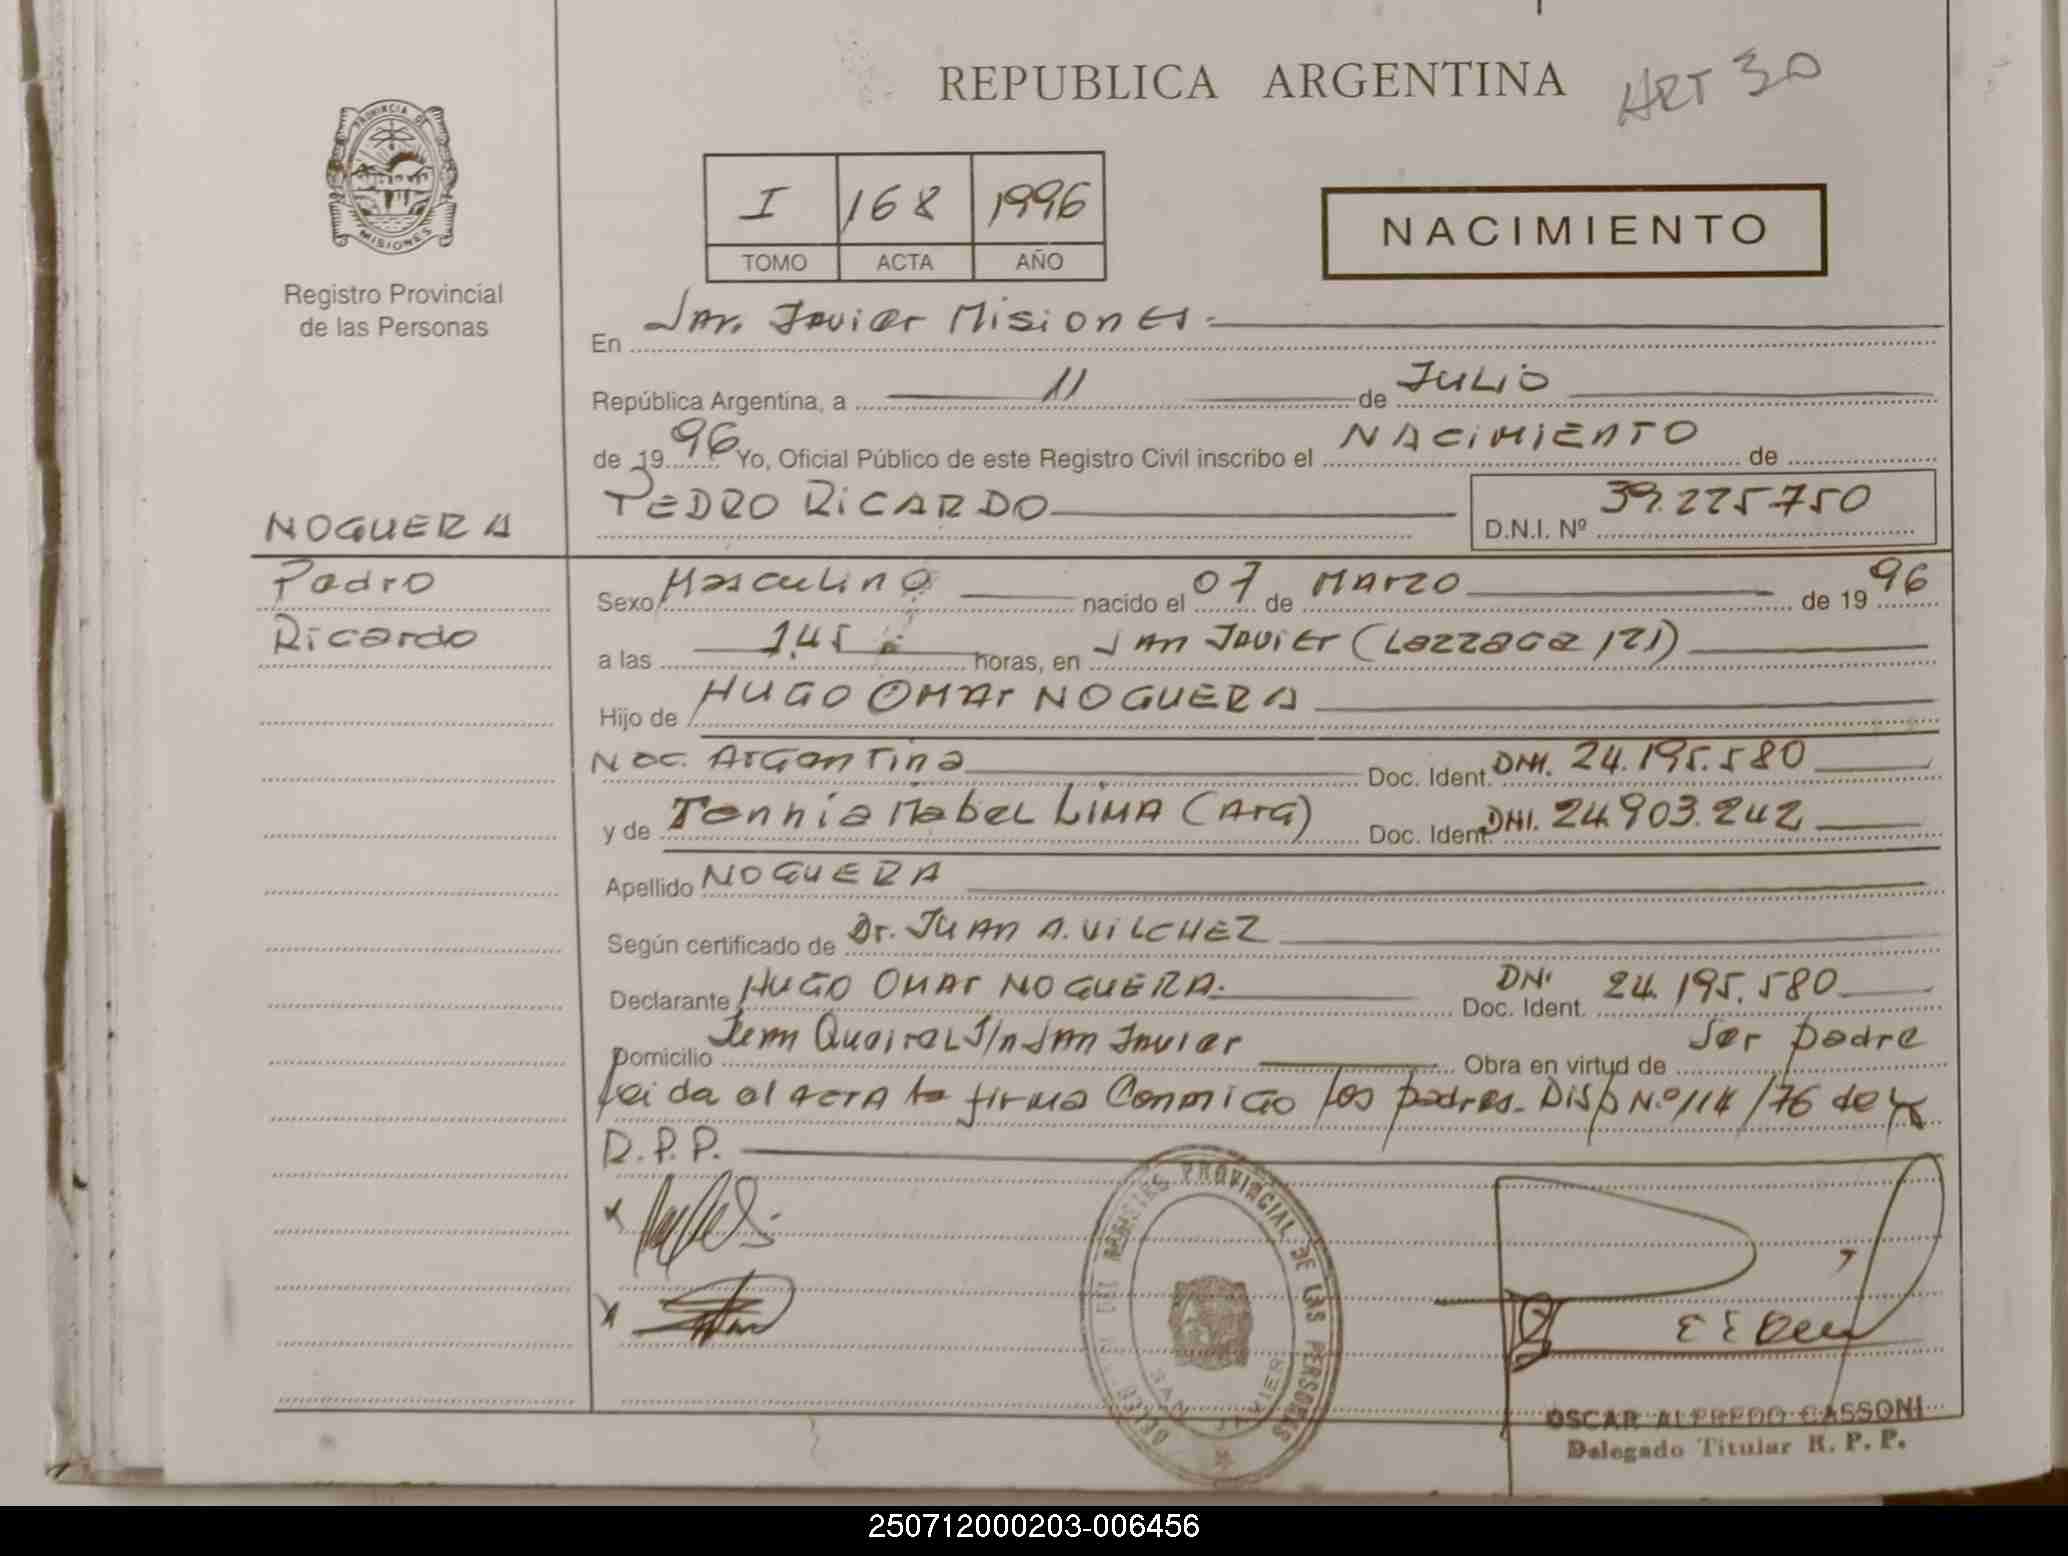 REPUBLICA ARGENTINA
ART 30
PROVINCIA DE
MISIONES
Registro Provincial
de las Personas
I 168 1996
TOMO ACTA AÑO
NACIMIENTO
En San Javier Misiones.
República Argentina, a 11 de JULIO
de 1996 Yo, Oficial Público de este Registro Civil inscribo el NACIMIENTO de
NOGUERA
PEDRO RICARDO D.N.I. Nº 39.225.750
Pedro
Sexo Masculino nacido el 07 de MARZO de 1996
Ricardo
a las 1,45 horas, en SAN JAVIER (Lazzaga 121)
Hijo de HUGO OMAR NOGUERA
Nac. Argentina Doc. Ident. DNI. 24.195.580
y de Tannia Mabel LIMA (Arg) Doc. Ident. DNI. 24.903.242
Apellido NOGUERA
Según certificado de Dr. JUAN A. VILCHEZ
Declarante HUGO OMAR NOGUERA. Doc. Ident. DNI 24.195.580
Domicilio S/n San Javier Obra en virtud de Ser padre
Leida el ACTA la firma Conmigo los padres. Disp Nº 114/76 de
D.P.P.
PROVINCIAL DE LAS PERSONAS
SAN JAVIER
OSCAR ALFREDO CASSONI
Delegado Titular R. P. P.
250712000203-006456